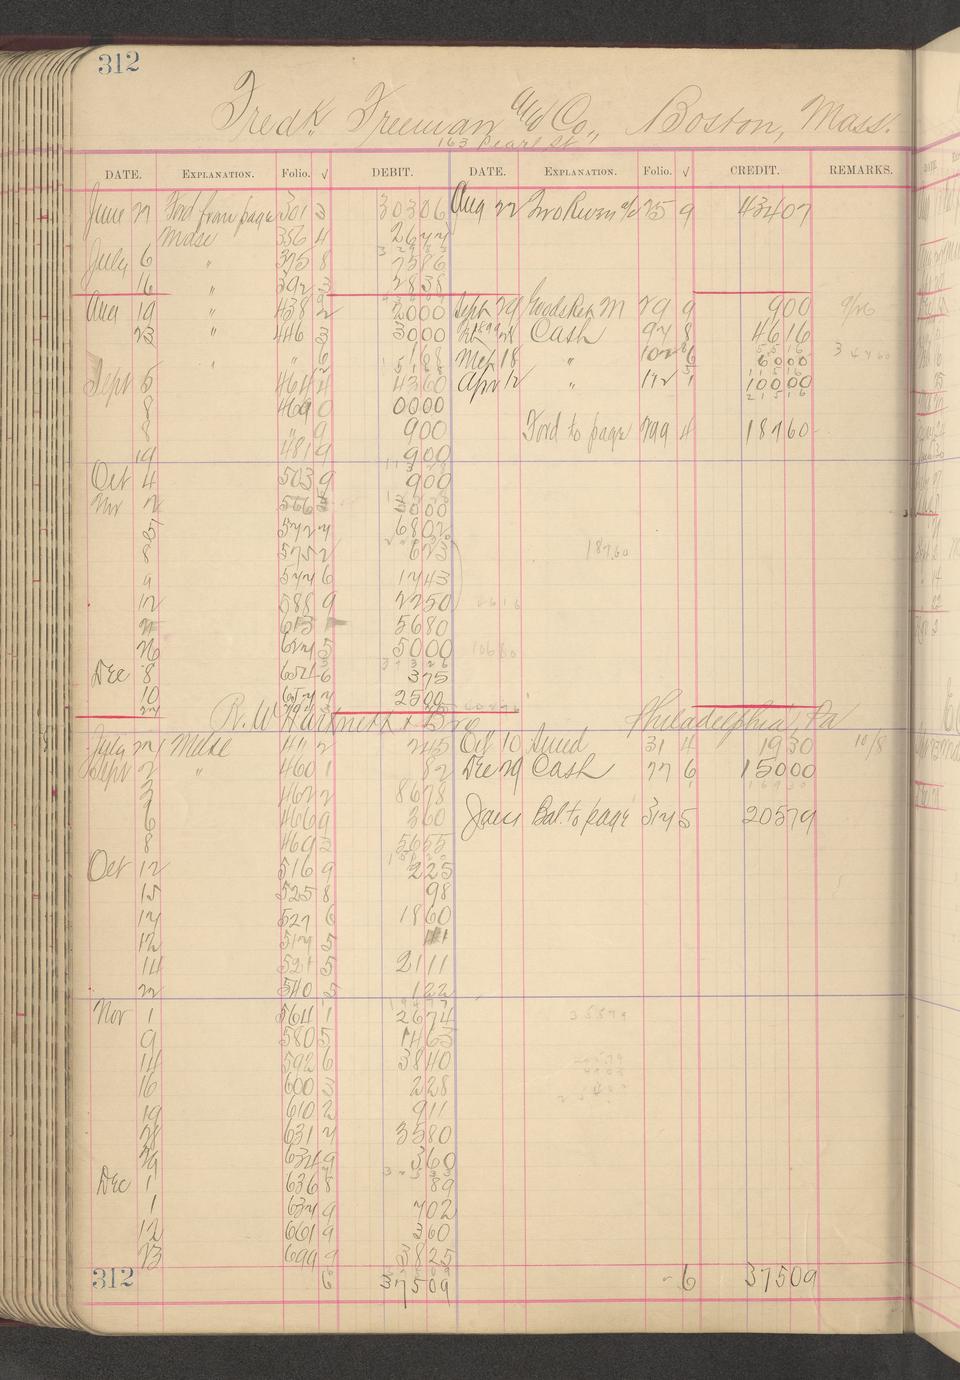 312
Fredk. Freeman and Co., Boston, Mass.
163 Pearl St
DATE. EXPLANATION. Folio. √ DEBIT. DATE. EXPLANATION. Folio. √ CREDIT. REMARKS.
June 27 Ford from page 301 3 30306 Aug 22 43407
Mdse 356 4 2644
July 6 " 375 8 7586
16 " 392 3 2838
Aug 19 " 438 2 2000 Sept 29 29 9 900 9/26
23 " 446 3 3000 Cash 97 8 4616
" 6 Mch 18 " 102 6 6000
Sept 5 464 4 4360 Apr 12 " 172 1 10000
8 469 0 0000
8 " 9 900 Ford to page 299 4 18760
19 481 9 900
Oct 4 503 9 900
Nov 2 566 3 3000
5 572 4 6802
8 575 2 623 18760
9 577 6 1743
12 588 9 2250
613 5680
26 627 5 5000 10680
Dec 8 654 6 375
10 657 7 2500
R. W. Hartnett & Bro Philadelphia, Pa
July 21 Mdse 411 2 245 Oct 10 Sund 31 4 1930 10/8
Sept 2 " 460 1 82 Dec 29 Cash 77 6 15000
3 462 2 8678
6 466 9 360 Jany Bal. to page 314 5 20579
8 469 3 5655
Oct 12 516 9 225
15 525 8 98
17 527 6 1860
12 517 5
14 521 5 2111
22 540 5 122
Nov 1 564 1 2674
9 580 5 1463
14 592 6 3840
16 600 3 228
19 610 2 911
28 631 7 3580
29 634 9 360
Dec 1 636 8 89
1 637 9 702
12 661 9 360
23 699 9 3825
312 6 37509 6 37509